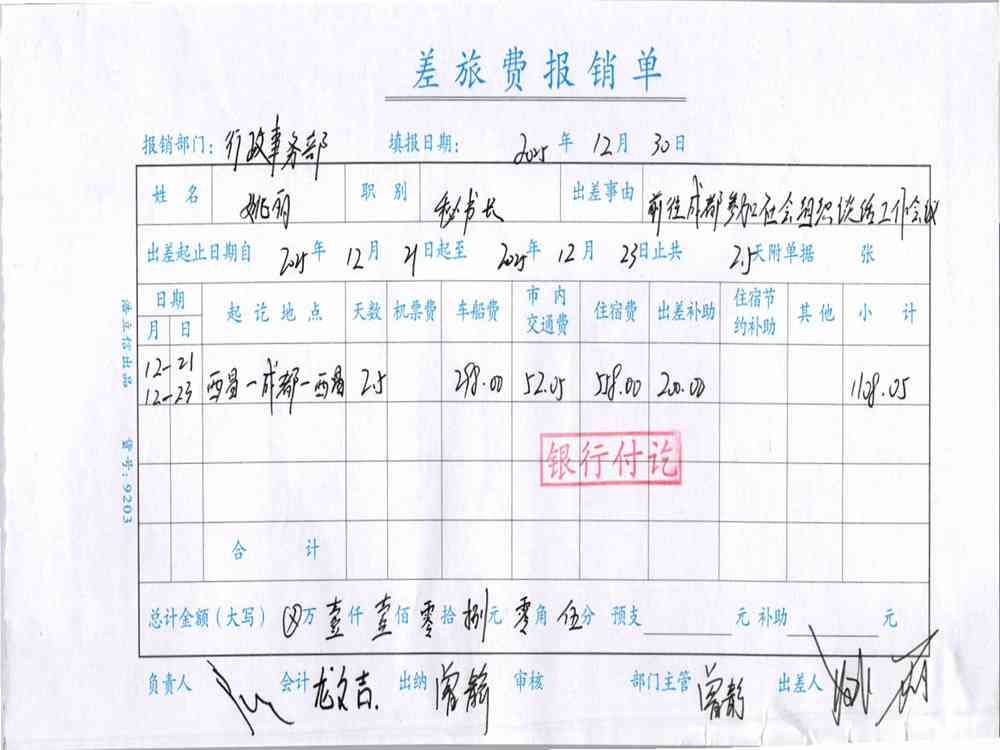 差旅费报销单
报销部门：行政事务部 填报日期：2025年12月30日
姓名 姚丽 职别 秘书长 出差事由 前往成都参加社会组织总结工作会议
出差起止日期自2025年12月21日起至2025年12月23日止共2.5天附单据 张
日期 月 日 起讫地点 天数 机票费 车船费 市内交通费 住宿费 出差补助 住宿节约补助 其他 小计
12-21
12-23 西昌-成都-西昌 2.5 298.00 52.05 558.00 200.00 1108.05
银行付讫
合计
总计金额（大写）ⓧ万壹仟壹佰零拾捌元零角伍分 预支 元 补助 元
负责人 会计 龙文吉 出纳 曾静 审核 部门主管 曾静 出差人 姚丽
立信出品 货号：9203